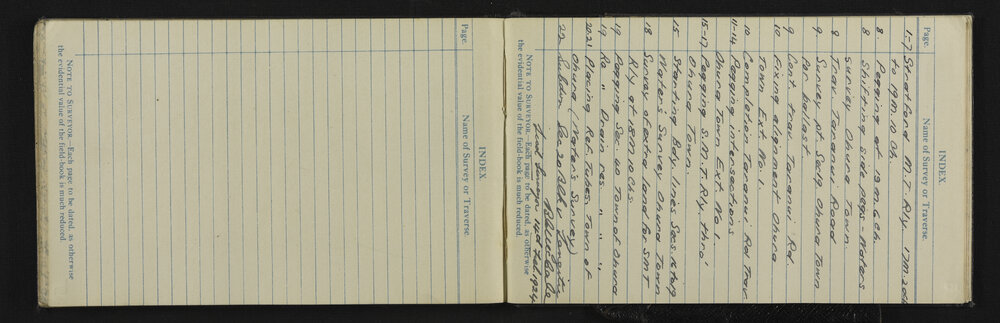 INDEX.
Page.
Name of Survey or Traverse.
1-7 Stratford M.T. Rly. 17m.20ch
to 19M. 10 Ch.
8. Pegging at 19m. 6 ch.
8 Shifting side pegs - Waters
survey Ohura Town.
9 Trav. Tananui Road
9. Survey pt. Sec 19 Ohura Town
for ballast
9 Cont. trav. Tananui Rd.
10 Fixing alignment Ohura
Town Ext. No. 1.
10 Completion Tananui Rd Trav
11-14 Pegging intersections
Ohura Town Ext. No 1.
15-17 Pegging S.M.T. Rly. thro'
Ohura Town.
15 Starting Bdy lines Secs 16 to 19
Water's Survey Ohura Town
18 Survey of extra land for SMT
Rly at 18M 10 Chs.
19 Pegging Sec. 40 Town of Ohura
19 Do " Drain res. " " "
20.21 Placing Ref. Tubes. Town of
Ohura (Water's Survey)
22 Subdn Sec 20 Blk V
Feb. 1924
NOTE TO SURVEYOR.—Each page to be dated, as otherwise
the evidential value of the field-book is much reduced.
INDEX.
Page.
Name of Survey or Traverse.
NOTE TO SURVEYOR.—Each page to be dated, as otherwise
the evidential value of the field-book is much reduced.